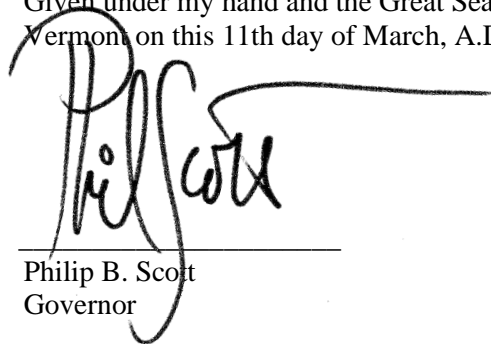 Given under my hand and the Great Sea
Vermont on this 11th day of March, A.D
Phil Scott
Philip B. Scott
Governor